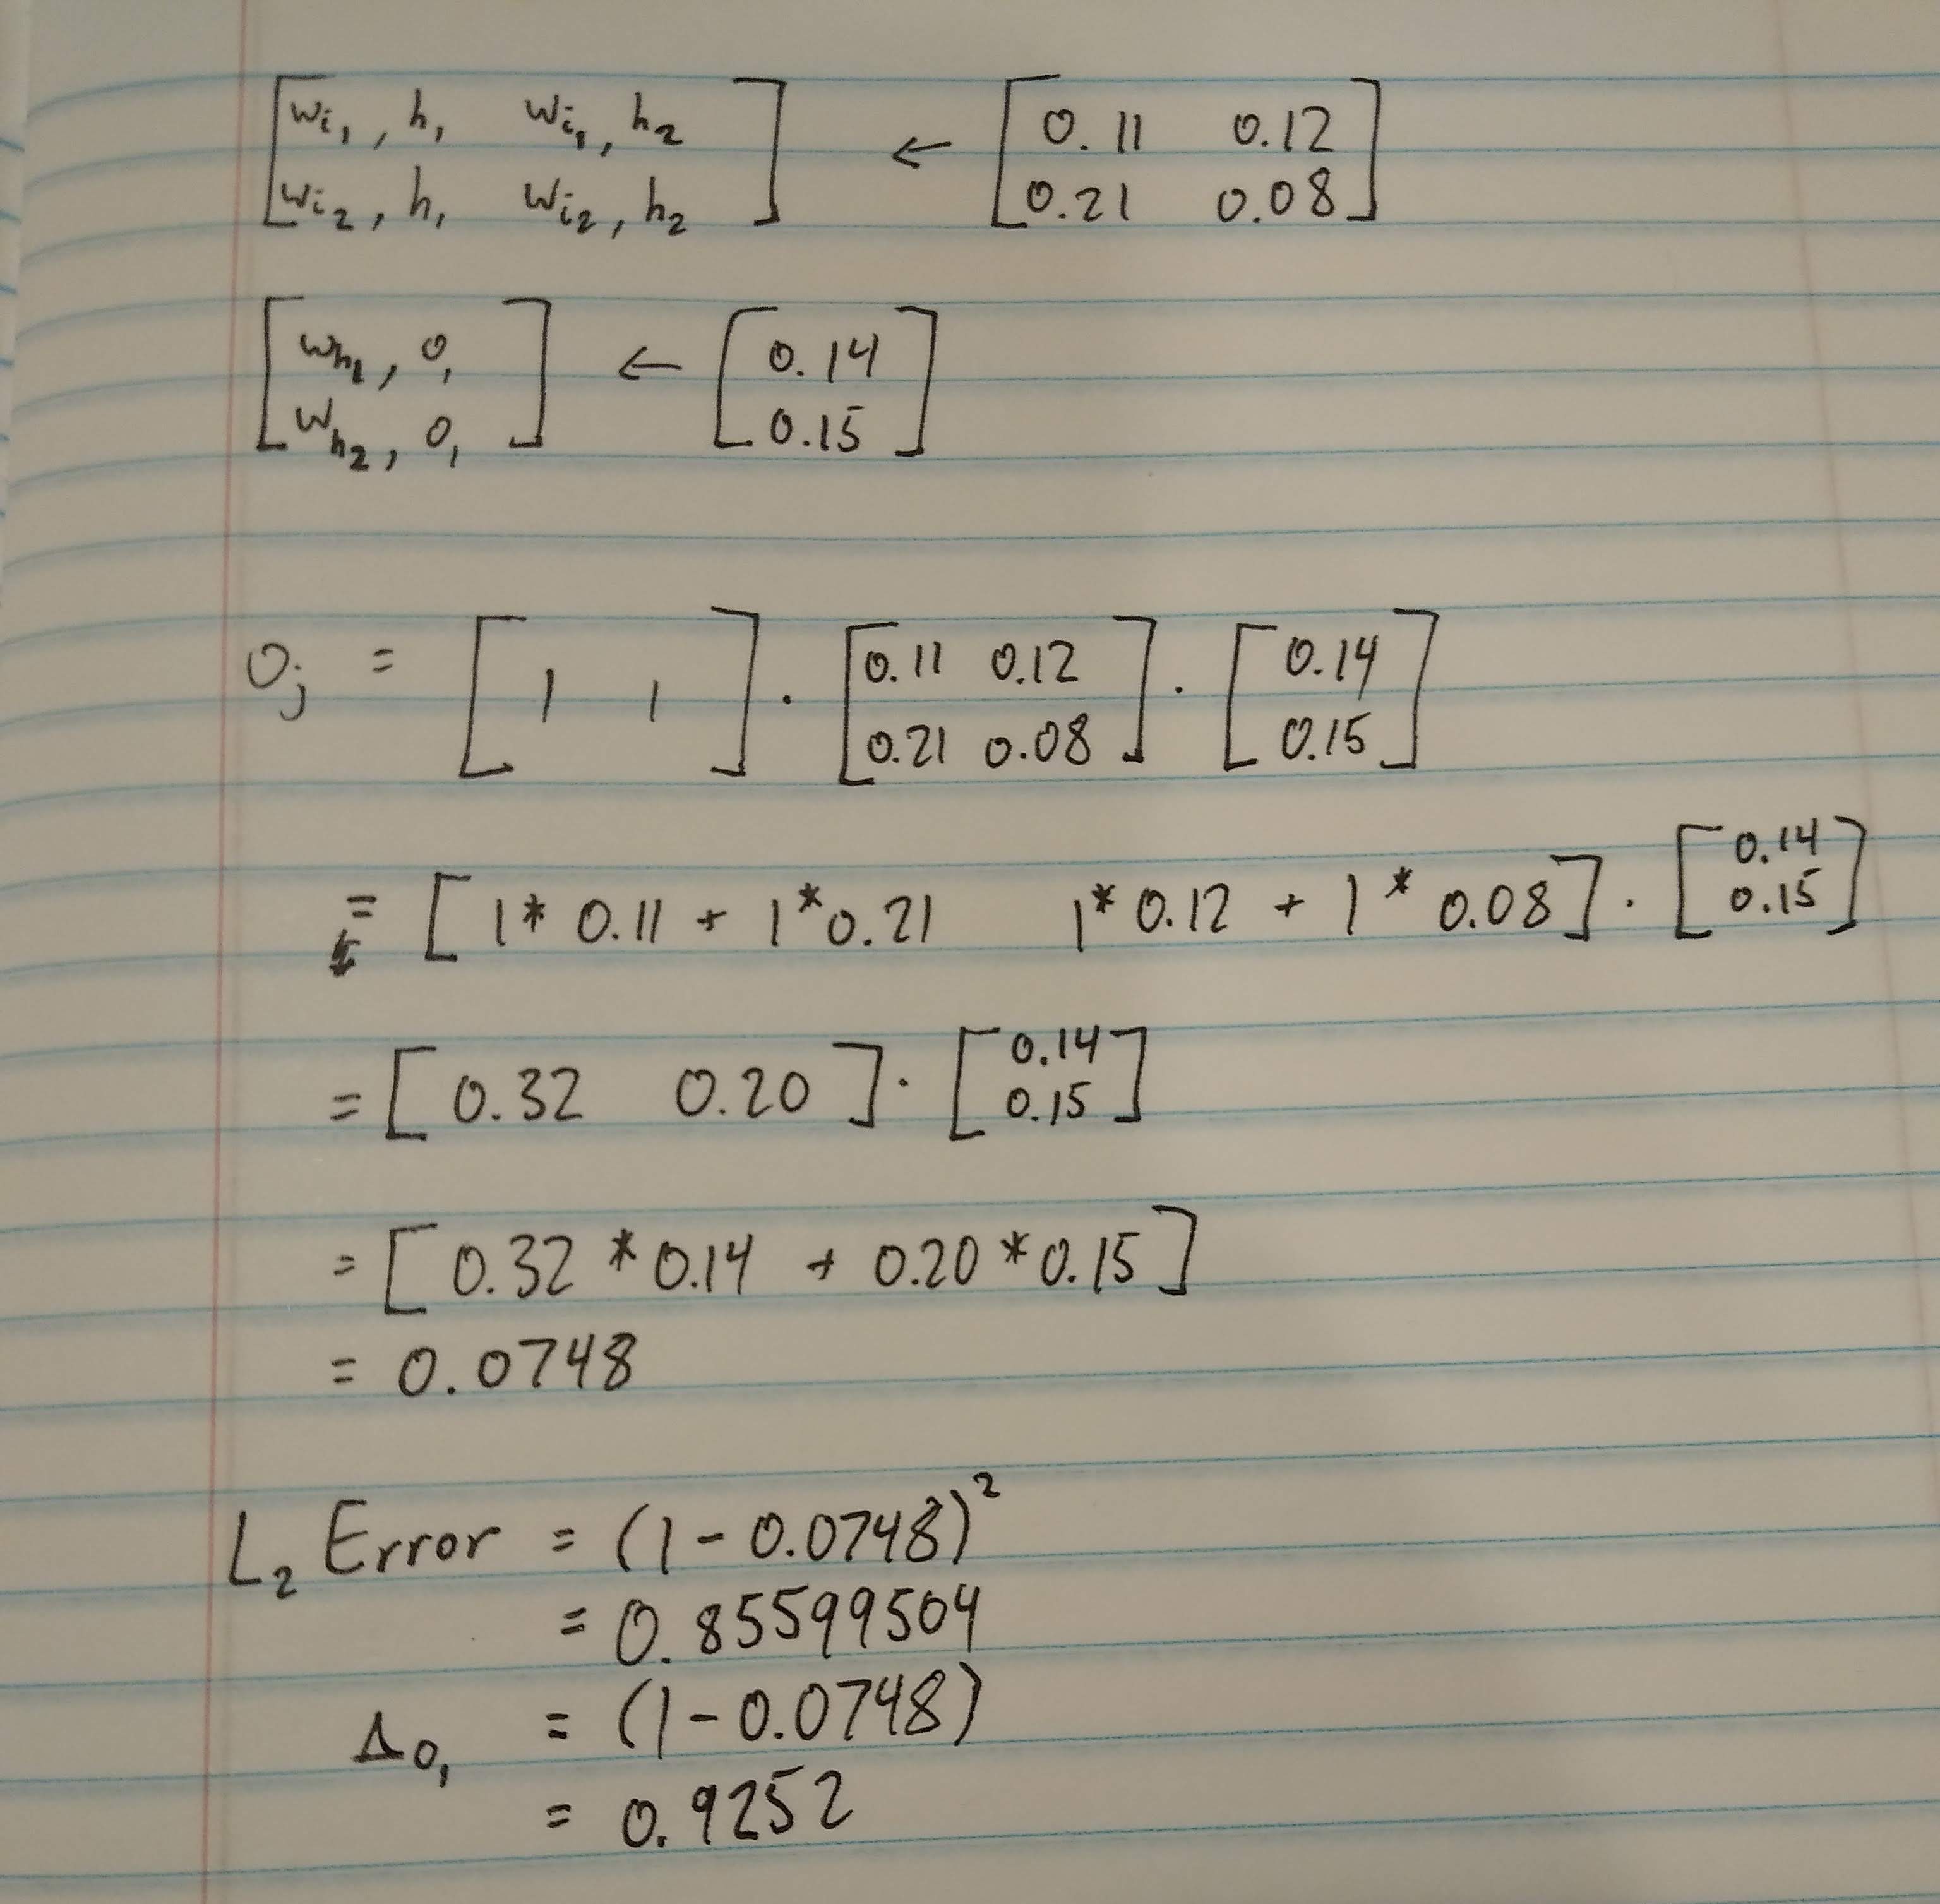 [ wi₁, h₁ wi₁, h₂ ] ← [ 0.11 0.12 ]
[ wi₂, h₁ wi₂, h₂ ] [ 0.21 0.08 ]
[ wh₁, o₁ ] ← [ 0.14 ]
[ wh₂, o₁ ] [ 0.15 ]
oⱼ = [ 1 1 ] · [ 0.11 0.12 ] · [ 0.14 ]
[ 0.21 0.08 ] [ 0.15 ]
= [ 1 * 0.11 + 1 * 0.21 1 * 0.12 + 1 * 0.08 ] · [ 0.14 ]
[ 0.15 ]
= [ 0.32 0.20 ] · [ 0.14 ]
[ 0.15 ]
= [ 0.32 * 0.14 + 0.20 * 0.15 ]
= 0.0748
L₂ Error = (1 - 0.0748)²
= 0.85599504
Δo₁ = (1 - 0.0748)
= 0.9252